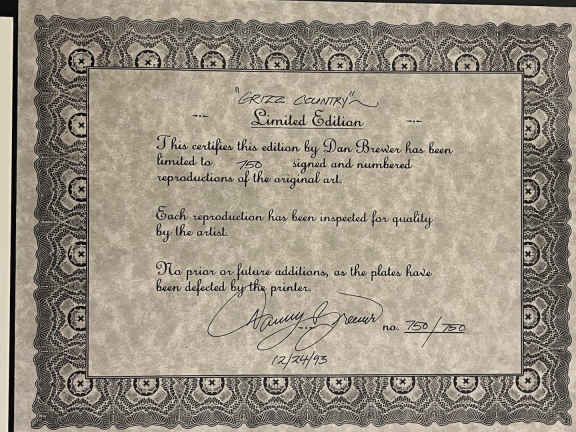 "GRIZZ COUNTRY"
Limited Edition
This certifies this edition by Dan Brewer has been
limited to 750 signed and numbered
reproductions of the original art.
Each reproduction has been inspected for quality
by the artist.
No prior or future additions, as the plates have
been defected by the printer.
Danny J Brewer no. 750/750
12/24/93